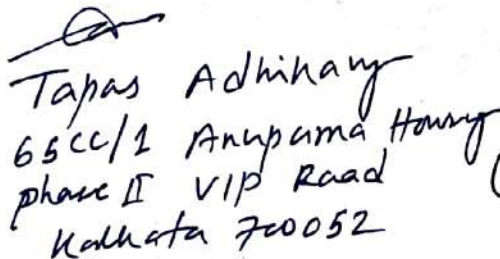 Tapas Adhikary
65CC/1 Anupama Housing
phase II VIP Road
Kolkata 700052